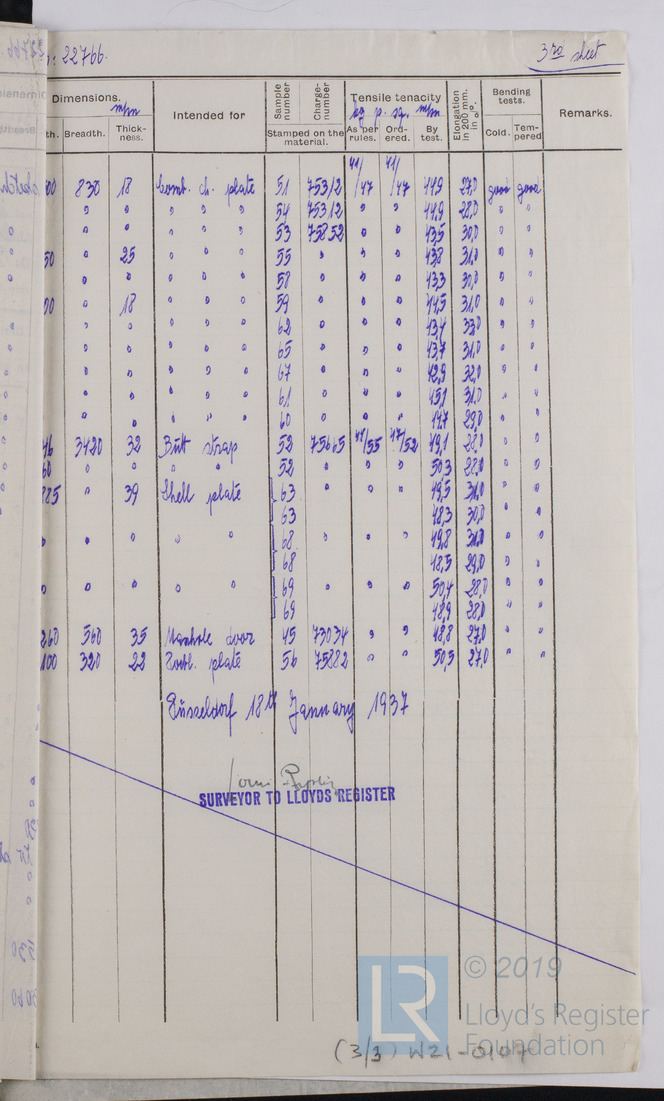 22766.
3rd sheet
Dimensions. Intended for Sample number Charge-number Tensile tenacity Elongation in 200 mm. in %. Bending tests. Remarks.
mm kg p. sq. mm
th. Breadth. Thick-ness. Stamped on the material. As per rules. Ord-ered. By test. Cold. Tem-pered
00 830 18 Comb. ch. plate 51 75312 41/47 41/47 44,9 27,0 good good
" " " " " 54 75312 " " 44,9 28,0 " "
" " " " " 53 75852 " " 43,5 30,0 " "
50 " 25 " " " 55 " " " 43,8 31,0 " "
" " " " " 58 " " " 43,3 30,0 " "
00 " 18 " " " 59 " " " 44,5 31,0 " "
" " " " " 62 " " " 43,4 33,0 " "
" " " " " 65 " " " 43,7 31,0 " "
" " " " " 67 " " " 42,9 32,0 " "
" " " " " 61 " " " 45,1 31,0 " "
" " " " " 60 " " " 44,7 29,0 " "
46 3420 32 Butt strap 52 75665 47/55 47/52 49,1 28,0 " "
60 " " " " 52 " " " 50,3 28,0 " "
885 " 39 Shell plate 63 " " " 49,5 31,0 " "
63 48,3 30,0 " "
" " " " " 68 " " " 49,8 31,0 " "
68 48,5 29,0 " "
" " " " " 69 " " " 50,4 28,0 " "
69 48,9 28,0 " "
260 560 35 Manhole door 45 73034 " " 48,8 27,0 " "
100 320 22 plate 56 75882 " " 50,5 27,0 " "
Düsseldorf 18th January 1937
SURVEYOR TO LLOYDS REGISTER
LR
© 2019
Lloyd's Register
Foundation
(3/3) W21-0107